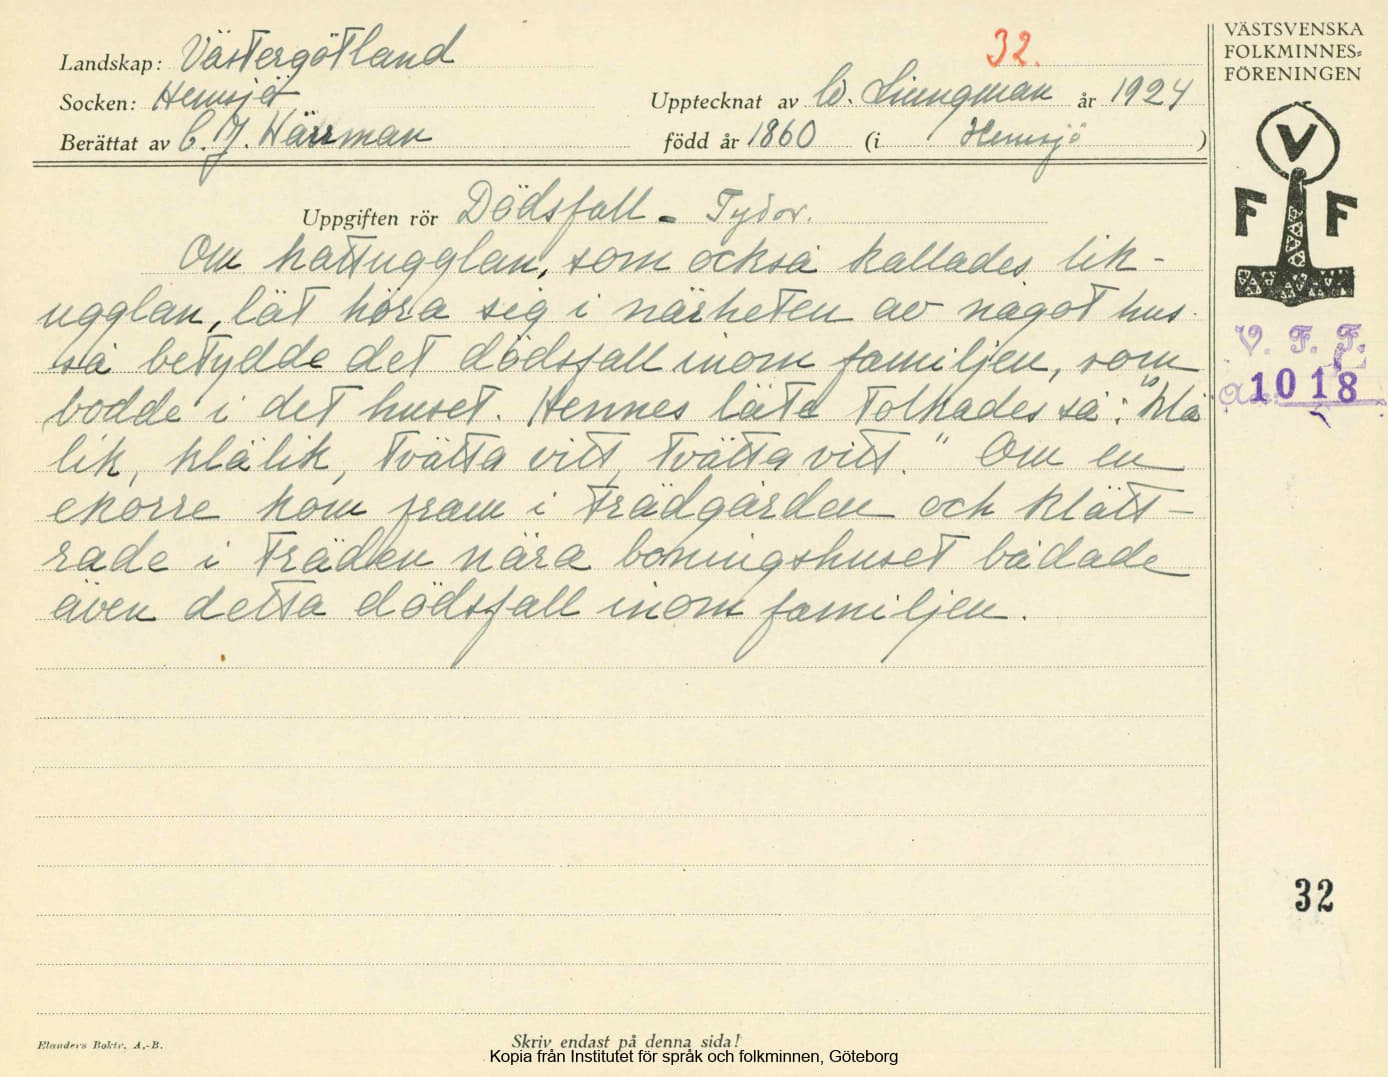 VÄSTSVENSKA
FOLKMINNES=
FÖRENINGEN
32.
Landskap: Västergötland
Socken: Hemsjö
Upptecknat av W. Liungman år 1924
Berättat av C. J. Härrman
född år 1860 (i Hemsjö )
V
F F
Uppgiften rör Dödsfall - Tydor.
Om kattugglan, som också kallades lik-
ugglan, lät höra sig i närheten av något hus
så betydde det dödsfall inom familjen, som
bodde i det huset. Hennes läte tolkades så: "klä
lik, klä lik, tvätta vitt, tvätta vitt." Om en
ekorre kom fram i trädgården och klätt-
rade i träden nära boningshuset bådade
även detta dödsfall inom familjen.
V. F. F.
1018
32
Elanders Boktr. A.-B.
Skriv endast på denna sida!
Kopia från Institutet för språk och folkminnen, Göteborg